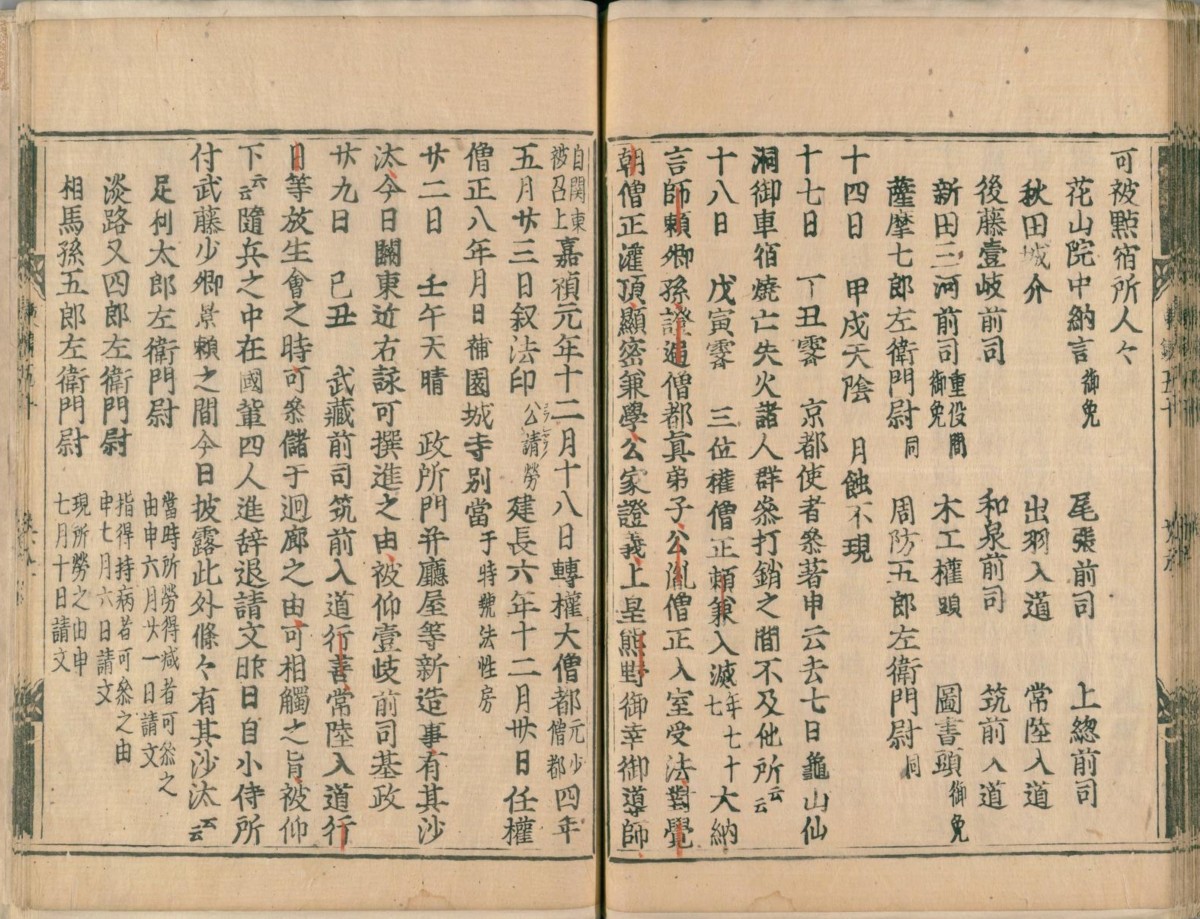 可被點宿所人々
花山院中納言御免　尾張前司　上總前司
秋田城介　出羽入道　常陸入道
後藤壹岐前司　和泉前司　筑前入道
新田三河前司重役間御免　木工權頭　圖書頭御免
薩摩七郎左衛門尉同　周防五郎左衛門尉同
十四日　甲戌天陰　月蝕不現
十七日　丁丑霽　京都使者叅著申云去七日龜山仙
洞御車宿燒亡失火諸人群叅打銷之間不及他所云云
十八日　戊寅霽　三位權僧正賴兼入滅年七十七大納
言師賴卿孫證遍僧都眞弟子公胤僧正入室受法對覺
朝僧正灌頂顯密兼學公家證義上皇熊野御幸御導師
自関東被召上嘉禎元年十二月十八日轉權大僧都元少僧都四年
五月廿三日叙法印公請勞建長六年十二月廿日任權
僧正八年月日補園城寺別當于時號法性房
廿二日　壬午天晴　政所門并廳屋等新造事有其沙
汰今日關東近古詠可撰進之由被仰壹岐前司基政
廿九日　己丑　武藏前司筑前入道行善常陸入道行
日等放生會之時可叅儲于迴廊之由可相觸之旨被仰
下云云隨兵之中在國輩四人進辞退請文昨日自小侍所
付武藤少卿景賴之間今日披露此外條々有其沙汰云云
足利太郎左衛門尉　當時所勞得减者可叅之由申六月廿一日請文
淡路又四郎左衛門尉　指得持病者可叅之由申七月六日請文
相馬孫五郎左衛門尉　現所勞之由申七月十日請文